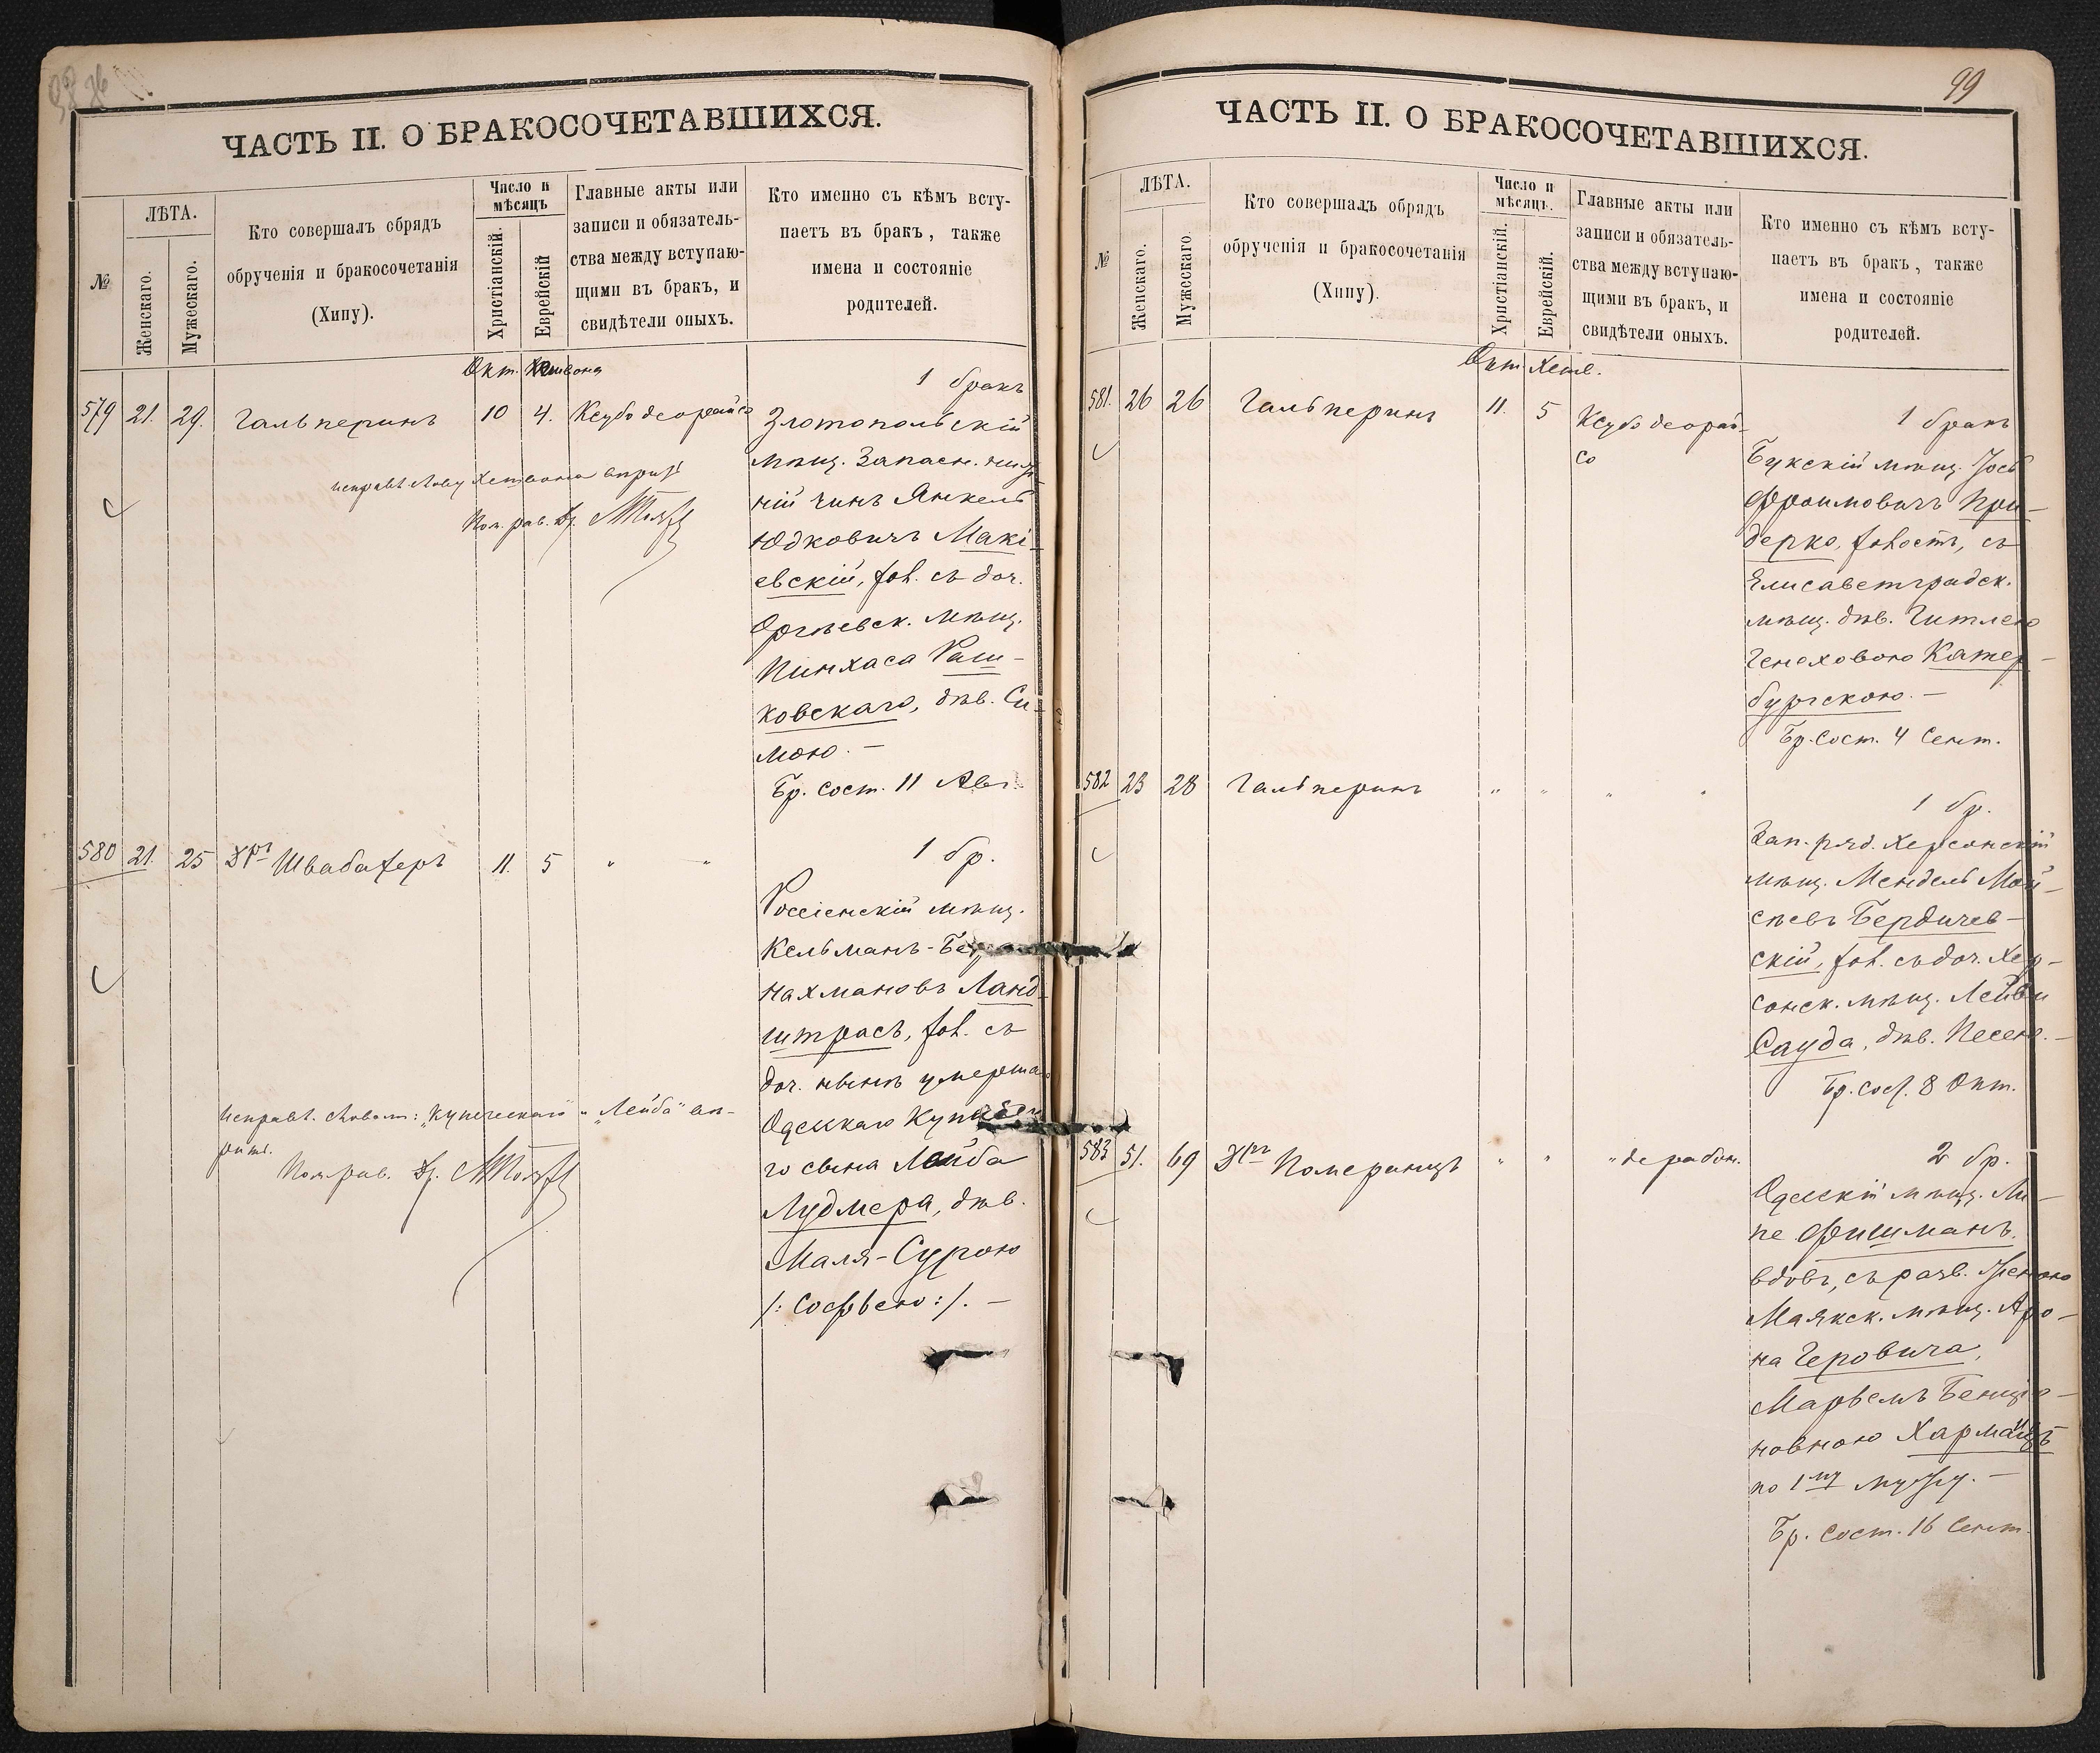 ЧАСТЬ II. О БРАКОСОЧЕТАВШИХСЯ.
№
ЛѢТА.
Женскаго.
Мужескаго.
Кто совершалъ обрядъ
обрученія и бракосочетанія
(Хипу).
Число и
мѣсяцъ
Христіанскій.
Еврейскій
Главные акты или
записи и обязатель-
ства между вступаю-
щими въ бракъ, и
свидѣтели оныхъ.
Кто именно съ кѣмъ всту-
паетъ въ бракъ, также
имена и состояніе
родителей.
Окт. Хешвона
579 21. 29. Гальперинъ 10 4. Ксубо деорайсо
1 бракъ
Златопольскій
мѣщ. Запасн. ниж-
ній чинъ Янкель
Юдковичъ Макі-
евскій, хол. съ доч.
Оргѣевск. мѣщ.
Пинхаса Раш-
ковскаго, дѣв. Си-
мою. —
Бр. сост. 11 Авг.
исправл. слову Хешвона вѣрить
Пом. рав. Др.
580 21. 25 Дръ Швабахеръ 11. 5 " "
1 бр.
Россіенскій мѣщ.
Кельманъ-Бер
Нахмановъ Ланд-
штрасъ, хол. съ
доч. нынѣ умерша
Одесскаго Купческа
го сына Лейба
Лудмера, дѣв.
Маля-Сурою
/: Софьею :/. —
Исправл. словам: „Купческаго" „Лейба" вѣ-
рить.
Пом. рав. Др.
99
ЧАСТЬ II. О БРАКОСОЧЕТАВШИХСЯ.
№
ЛѢТА.
Женскаго.
Мужескаго.
Кто совершалъ обрядъ
обрученія и бракосочетанія
(Хипу).
Число и
мѣсяцъ.
Христіанскій.
Еврейскій.
Главные акты или
записи и обязатель-
ства между вступаю-
щими въ бракъ, и
свидѣтели оныхъ.
Кто именно съ кѣмъ всту-
паетъ въ бракъ, также
имена и состояніе
родителей.
Окт. Хешв.
581. 26 26 Гальперинъ 11. 5 Ксубо деорай-
со
1 бракъ
Букскій мѣщ. Іось
Фроимовичъ При-
дерко, холость, съ
Елисаветградск.
мѣщ. дѣв. Гитлею
Геноховою Катер-
бургскою. —
Бр. сост. 4 Сент.
582 23 28 Гальперинъ " " " "
1 бр.
Зап. ряд. Херсонскій
мѣщ. Мендель Мой-
сеевъ Бердичев-
скій, хол. съ доч. Хер-
сонск. мѣщ. Лейви
Сауда, дѣв. Песею. —
Бр. сост. 8 Окт.
583 51. 69 Дръ Померанцъ " " " дерабон.
2 бр.
Одесскій мѣщ. Ли-
пе Фишманъ,
вдовъ, съ разв. женою
Маякск. мѣщ. Аро-
на Геровича,
Марьемъ Бенціо-
новною Хармацъ
по 1му мужу. —
Бр. сост. 16 Сент.